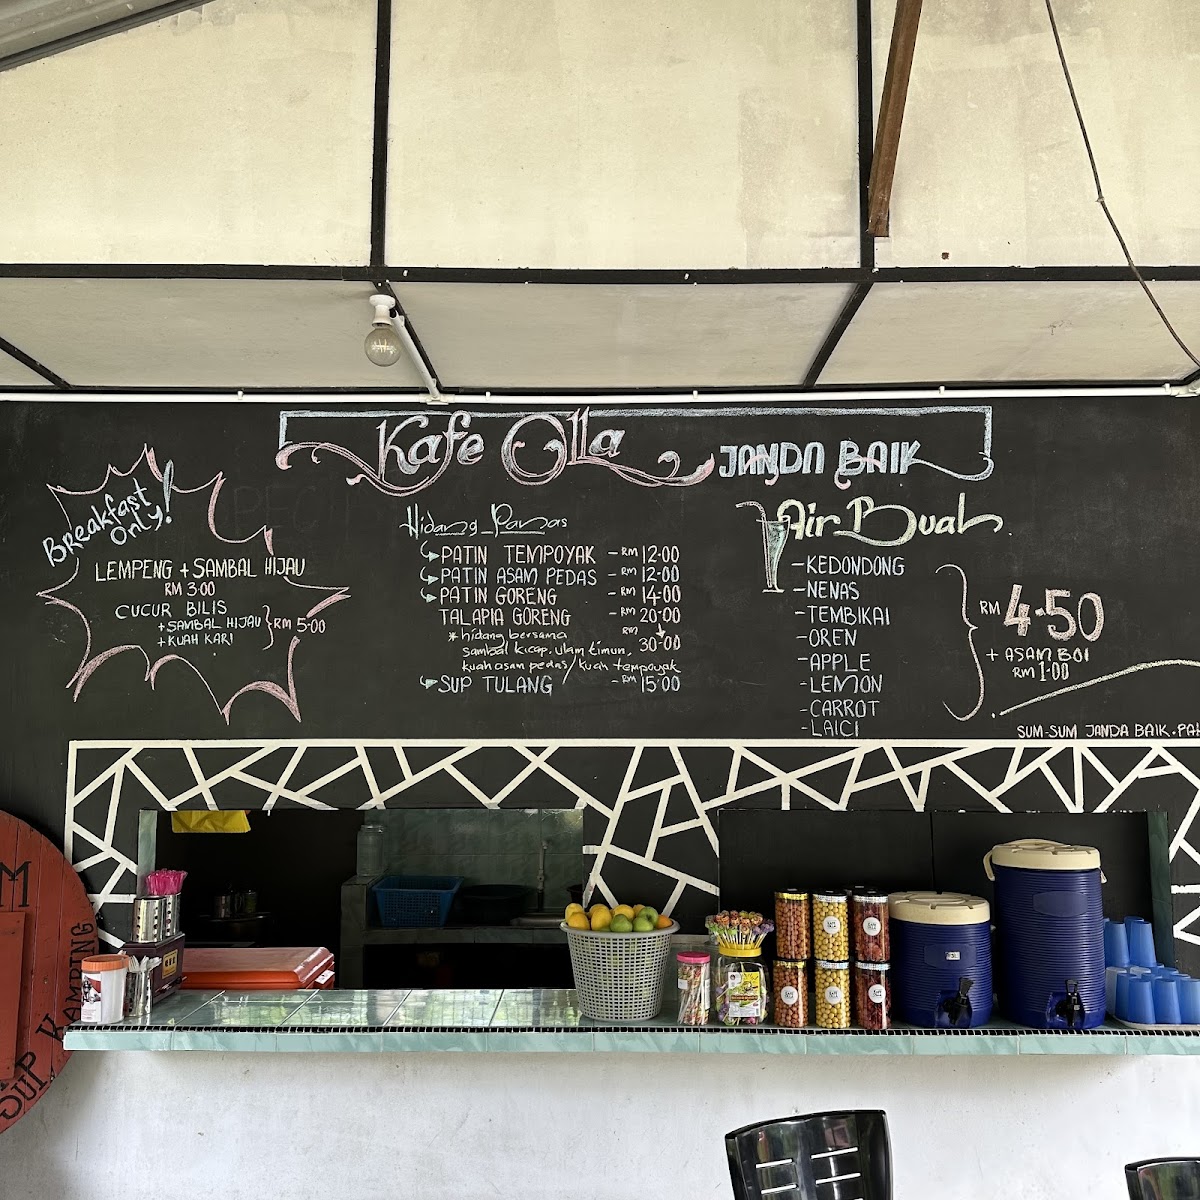 Kafe Olla
JANDA BAIK
Breakfast
Only!
LEMPENG + SAMBAL HIJAU
RM 3.00
CUCUR BILIS
+ SAMBAL HIJAU
+ KUAH KARI
} RM 5.00
Hidang Panas
PATIN TEMPOYAK - RM 12.00
PATIN ASAM PEDAS - RM 12.00
PATIN GORENG - RM 14.00
TALAPIA GORENG - RM 20.00
* hidang bersama RM 30.00
sambal kicap, ulam timun,
kuah asam pedas/kuah tempoyak
SUP TULANG - RM 15.00
Air Buah
- KEDONDONG
- NENAS
- TEMBIKAI
- OREN
- APPLE
- LEMON
- CARROT
- LAICI
RM 4.50
+ ASAM BOI
RM 1.00
SUM-SUM JANDA BAIK. PAH
M
SUP KAMPING